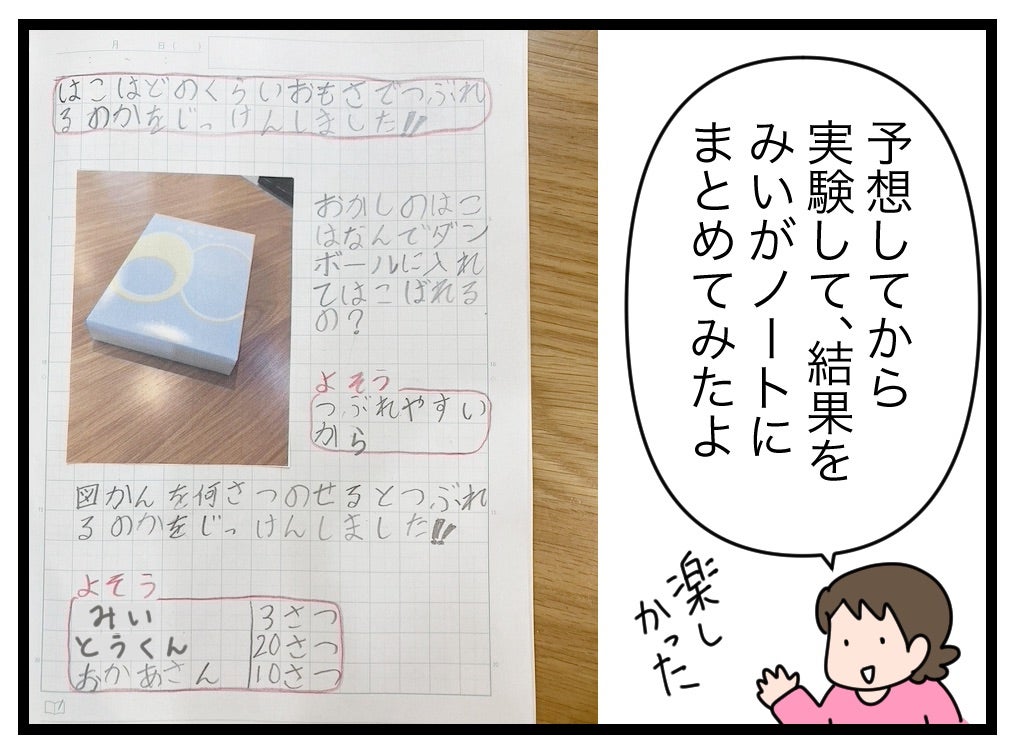 月 日( )
はこはどのくらいおもさでつぶれ
るのかをじっけんしました!!
おかしのはこ
はなんでダン
ボールに入れ
てはこばれる
の?
よそう
つぶれやすい
から
図かんを何さつのせるとつぶれ
るのかをじっけんしました!!
よそう
みい 3さつ
とうくん 20さつ
おかあさん 10さつ
予想してから
実験して、結果を
みいがノートに
まとめてみたよ
楽し
かった